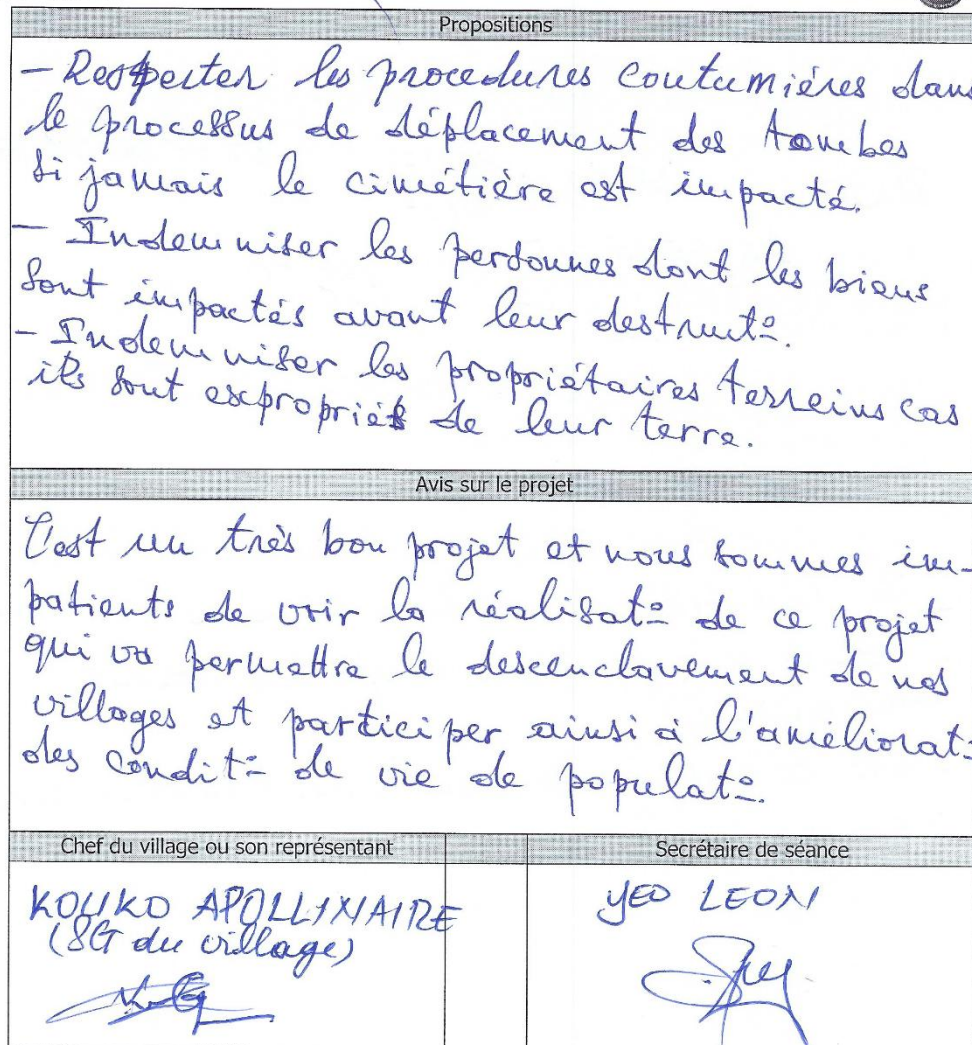 Propositions
- Respecter les procedures coutumiéres dans
le processus de déplacement des tombes
si jamais le cimétière est impacté.
- Indemniser les personnes dont les biens
sont impactés avant leur destruct°.
- Indemniser les propriétaires terreins cas
ils sont expropriés de leur terre.
Avis sur le projet
C'est un très bon projet et nous sommes im-
patients de voir la réalisat° de ce projet
qui va permettre le descenclavement de nos
villages et participer ainsi à l'améliorat°
des condit° de vie de populat°.
Chef du village ou son représentant
Secrétaire de séance
KOUKO APOLLINAIRE
(SG du village)
YEO LEON